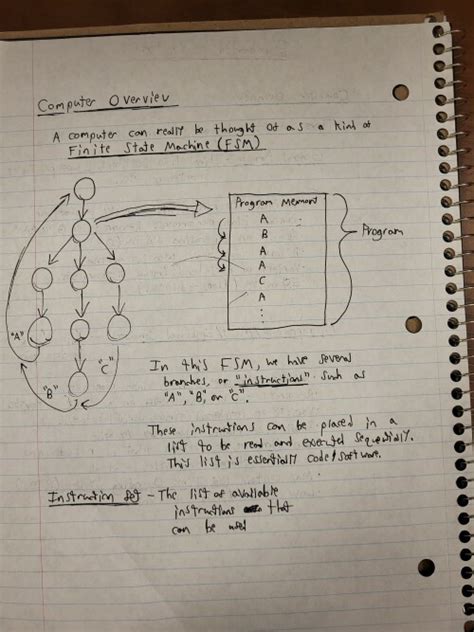 Computer Overview
A computer can really be thought of as a kind of
Finite State Machine (FSM)
Program Memory
A
B
A
A
C
A
Program
"A"
"B"
"C"
In this FSM, we have several
branches, or "instructions" such as
"A", "B", or "C".
These instructions can be placed in a
list to be read and executed sequentially.
This list is essentially code/software.
Instruction Set - The list of available
instructions that
can be used